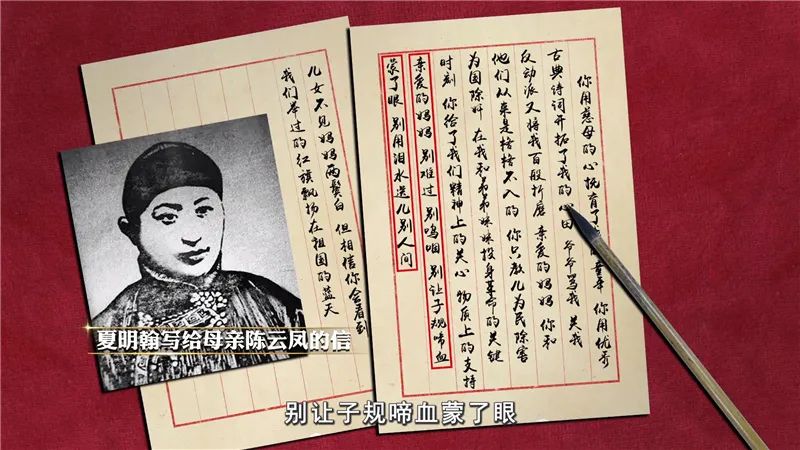 你用慈母的心抚育了的童年 你用优秀
古典诗词开拓了我的心田 爷爷骂我 关我
反动派又将我百般折磨 亲爱的妈妈 你和
他们从来是格格不入的 你只教儿为民除害
为国除奸 在我和弟弟妹妹投身革命的关键
时刻 你给了我们精神上的关心 物质上的支持
亲爱的妈妈 别难过 别呜咽 别让子规啼血
蒙了眼 别用泪水送儿别人间
儿女不见妈妈两鬓白 但相信你会看到
我们举过的红旗飘扬在祖国的蓝天
夏明翰写给母亲陈云凤的信
别让子规啼血蒙了眼